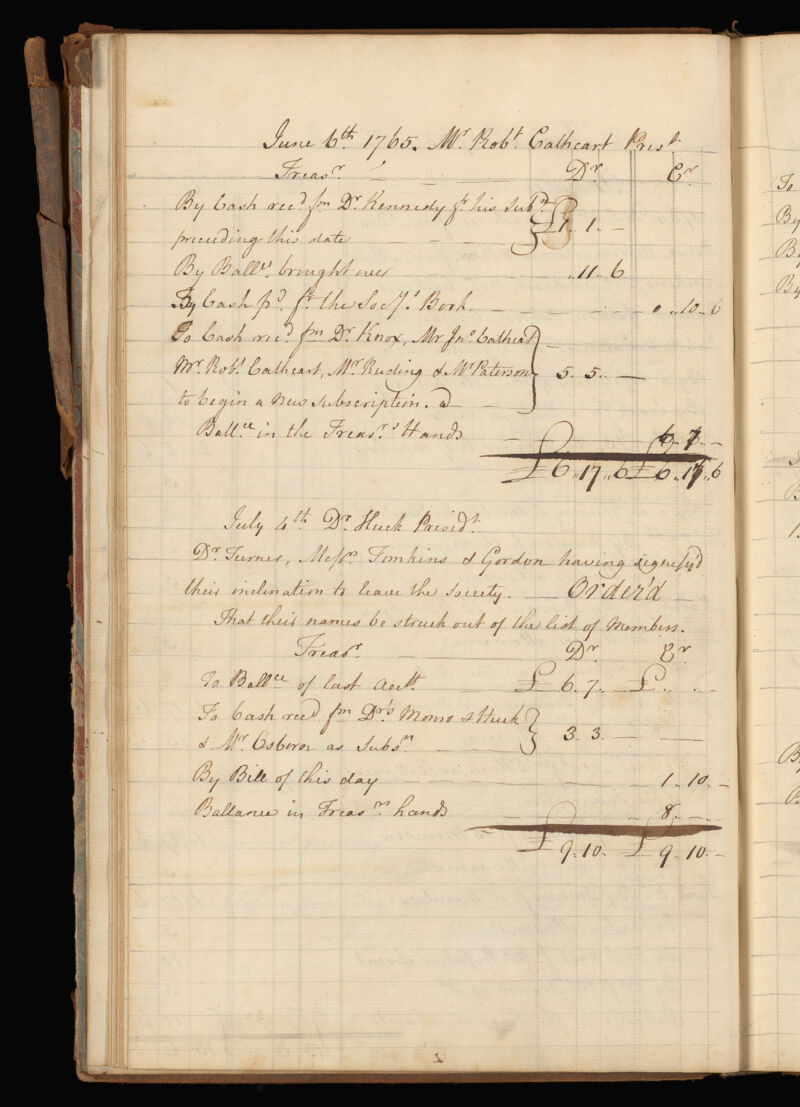 June 6th. 1765. Mr Robt. Cathcart Prest
Treasr. Dr. Cr.
By Cash recd fm Dr Kennedy fr his Subn. £1. 1. –
preceeding this date
By Ballce. brought over „11„6
By Cash pd. fr. the Socy's Book 0„10„6
To Cash recd. fm Dr. Knox, Mr Jno. Cathcart
Mr. Robt Cathcart, Mr Ruding & Mr Paterson 5. 5. –
to begin a New Subscription.
Ballce in the Treasrs Hands 6. 7. –
£6„17„6 £6„17„6
July 4th Dr. Huck Presidt.
Dr. Turner, Messrs. Tomkins & Gordon having signify'd
their inclination to leave the Society. Order'd
That their names be struck out of the list of Members.
Treasr. Dr. Cr.
To Ballce of last Acctt. £ 6. 7. – £ . . –
To Cash recd fm Drs Monro & Huck
& Mr. Osboron as Subsn. 3. 3. –
By Bill of this day 1. 10. –
Ballance in Treasrs hands 8. –
£9. 10. – £9. 10. –
2
To
By
B
By